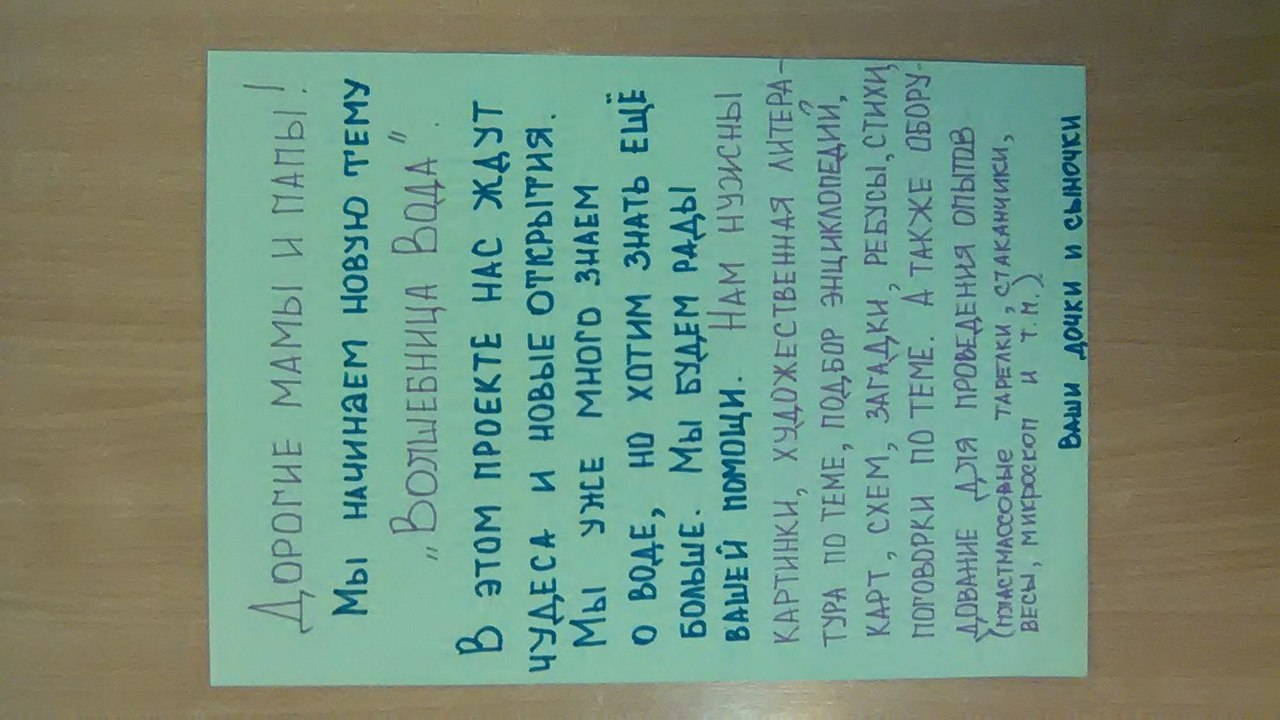 Дорогие мамы и папы!
Мы начинаем новую тему
„Волшебница Вода".
В этом проекте нас ждут
чудеса и новые открытия.
Мы уже много знаем
о воде, но хотим знать ещё
больше. Мы будем рады
вашей помощи. Нам нужны
картинки, художественная литера-
тура по теме, подбор энциклопедий,
карт, схем, загадки, ребусы, стихи,
поговорки по теме. А также обору-
дование для проведения опытов
(пластмассовые тарелки, стаканчики,
весы, микроскоп и т.п.)
Ваши дочки и сыночки